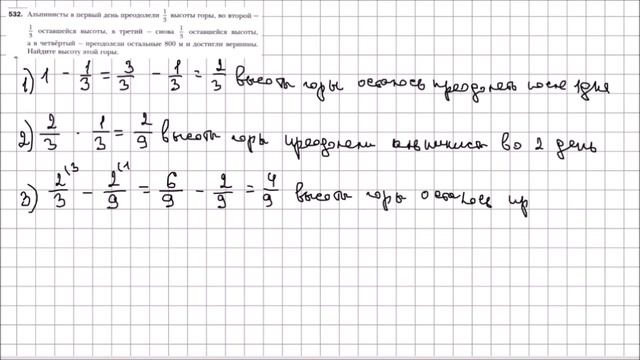 532. Альпинисты в первый день преодолели 1/3 высоты горы, во второй –
1/3 оставшейся высоты, в третий – снова 1/3 оставшейся высоты,
а в четвёртый – преодолели остальные 800 м и достигли вершины.
Найдите высоту этой горы.
1) 1 - 1/3 = 3/3 - 1/3 = 2/3 высоты горы осталось преодолеть после 1 дня
2) 2/3 · 1/3 = 2/9 высоты горы преодолели альпинист во 2 день
3) 2/3 (3 - 2/9 (1 = 6/9 - 2/9 = 4/9 высоты горы осталось пр